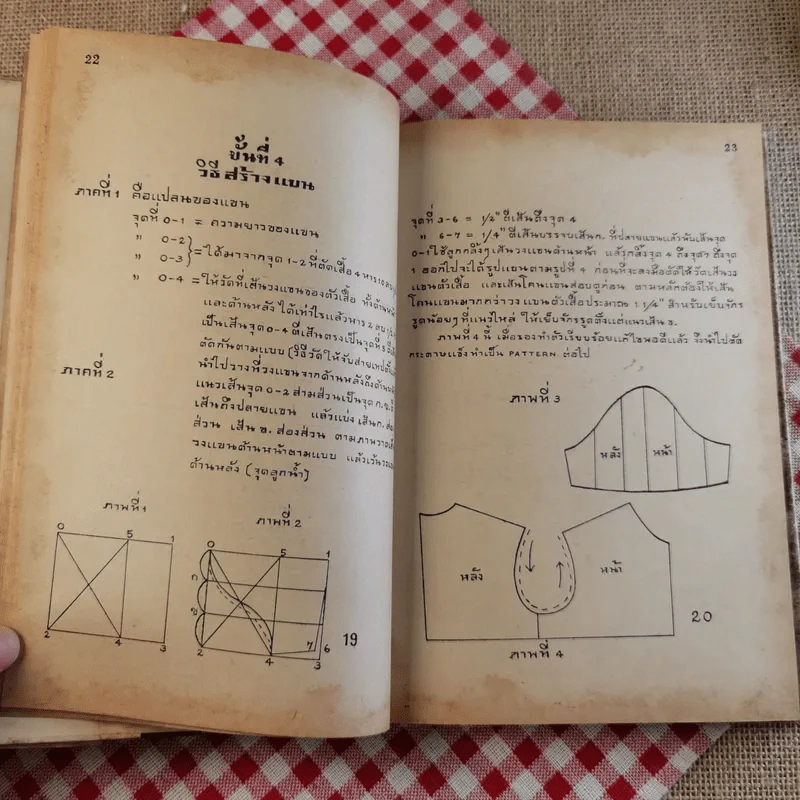 22
ขั้นที่ 4
วิธีสร้างแขน
ภาคที่ 1 คือแปลนของแขน
จุดที่ 0-1 = ความยาวของแขน
" 0-2
" 0-3 } = ได้มาจากจุด 1-2 ที่ตัดเสื้อ 4 หาร
" 0-4 = ให้วัดที่เส้นวงแขนของตัวเสื้อ ทั้งด้านหน้า
และด้านหลัง ได้เท่าไรแล้วหาร 2
เป็นเส้นจุด 0-4 ตีเส้นตรงเป็นจุดที่ 5
ตัดกันตามแบบ (วิธีวัดให้จับสายเทป
ภาคที่ 2
นำไปวางที่วงแขนจากด้านหลังถึงด้าน
แนวเส้นจุด 0-2 สามส่วนเป็นจุด ก. ข.
เส้นถึงปลายแขน แล้วแบ่งเส้น ก.
ส่วน เส้น ข. สองส่วน ตามภาพวาด
วงแขนด้านหน้าตามแบบ แล้วเว้น
ด้านหลัง (จุดลูกน้ำ)
ภาพที่ 1
0 5 1
2 4 3
ภาพที่ 2
0 5 1
ก
ข
2 4 3 7 6
19
23
จุดที่ 3-6 = 1/2" ตีเส้นถึงจุด 4
" 6-7 = 1/4" ตีเส้นบรรจบเส้น ก. ที่ปลายแขนแล้วพับเส้นจุด
0-1 ใช้ลูกกลิ้งๆ เส้นวงแขนด้านหน้า แล้วกลิ้งจุด 4 ถึงจุด 7 ถึงจุด
1 ออกไปจะได้รูปแขนตามรูปที่ 4 ก่อนที่จะลงมือตัดให้วัดเส้นวง
แขนตัวเสื้อ และเส้นโคนแขนสอบดูก่อน ตามหลักต้องให้เส้น
โคนแขนมากกว่าวงแขนตัวเสื้อประมาณ 1 1/4" สำหรับเย็บจักร
รูดน้อยๆ ที่แนวไหล่ ให้เย็บจักรรูดตั้งแต่แนวเส้น ข.
ภาพที่ 4 นี้ เมื่อลองทำตัวเรียบร้อยแก้ไขพอดีแล้ว จึงนำไปตัด
กระดาษแข็งทำเป็น PATTERN ต่อไป
ภาพที่ 3
หลัง หน้า
หลัง หน้า
20
ภาพที่ 4